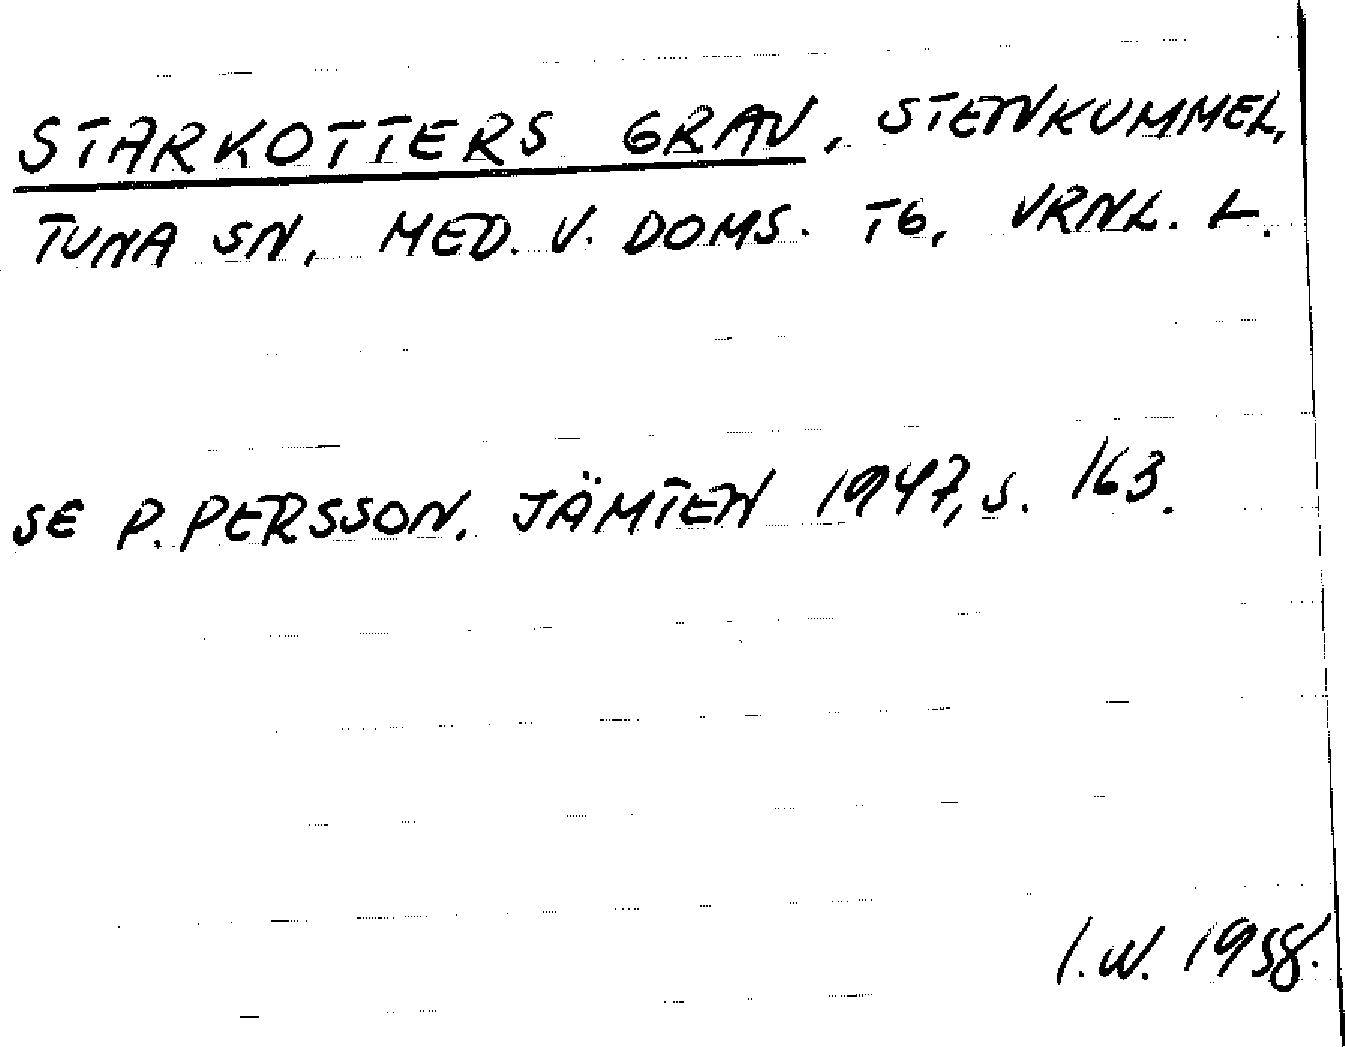 STARKOTTERS GRAV, STENKUMMEL,
TUNA SN, MED. V. DOMS. TG, VRNL. L.
SE P. PERSSON. JÄMTEN 1947, S. 163.
I.W. 1958.